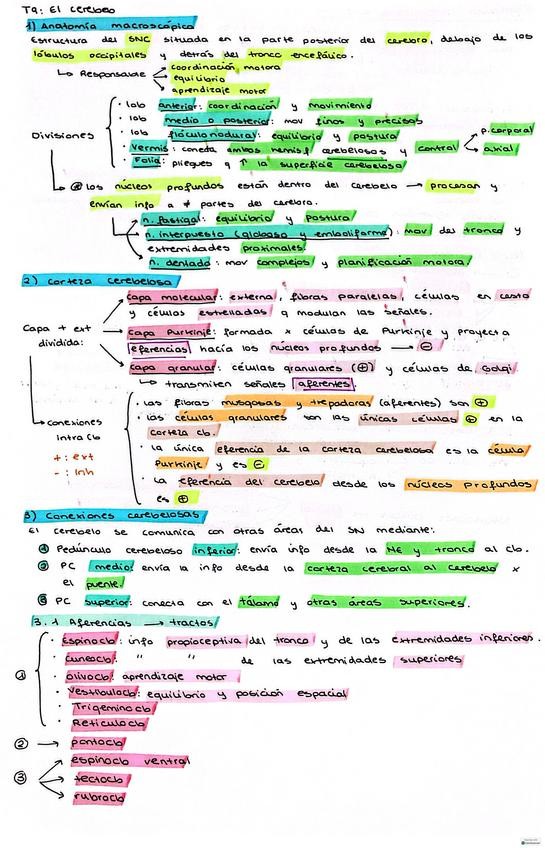 T9: El cerebelo
1) Anatomía macroscópica
Estructura del SNC situada en la parte posterior del cerebro, debajo de los
lóbulos occipitales y detrás del tronco encefálico.
↳ Responsable
coordinación motora
equilibrio
aprendizaje motor
Divisiones
· lob anterior: coordinación y movimiento
· lob medio o posterior: mov finos y precisos
· lob floculonodular: equilibrio y postura
· Vermis: conecta ambos hemisf cerebelosos y control
p. corporal
axial
· Folia: pliegues q ↑ la superficie cerebelosa
los núcleos profundos están dentro del cerebelo → procesan y
envían info a ≠ partes del cerebro.
n. fastigal: equilibrio y postura
n. interpuesto (globoso y emboliforme): mov del tronco y
extremidades proximales.
n. dentado: mov complejos y planificación motora.
2) Corteza cerebelosa
Capa + ext
dividida:
capa molecular: externa, fibras paralelas, células en cesta
y células estrelladas q modulan las señales.
capa Purkinje: formada x células de Purkinje y proyecta
eferencias hacía los núcleos profundos → ⊖
capa granular: células granulares (⊕) y células de Golgi
↳ transmiten señales aferentes
conexiones
intra Cb
+ : ext
- : inh
· las fibras musgosas y trepadoras (aferentes) son ⊕
· las células granulares son las únicas células ⊕ en la
corteza cb.
· la única eferencia de la corteza cerebelosa es la célula
Purkinje y es ⊖
· La eferencia del cerebelo desde los núcleos profundos
es ⊕
3) Conexiones cerebelosas
El cerebelo se comunica con otras áreas del SN mediante:
① Pedúnculo cerebeloso inferior: envía info desde la ME y tronco al cb.
② PC medio: envía la info desde la corteza cerebral al cerebelo x
el puente.
③ PC superior: conecta con el tálamo y otras áreas superiores.
3.1 Aferencias → tractos
①
· Espinocb: info propioceptiva del tronco y de las extremidades inferiores.
· Cuneocb: " " de las extremidades superiores
· olivocb: aprendizaje motor
· Vestibulocb: equilibrio y posición espacial
· Trigeminocb
· Reticulocb
② → pontocb
③
espinocb ventral
tectocb
rubrocb